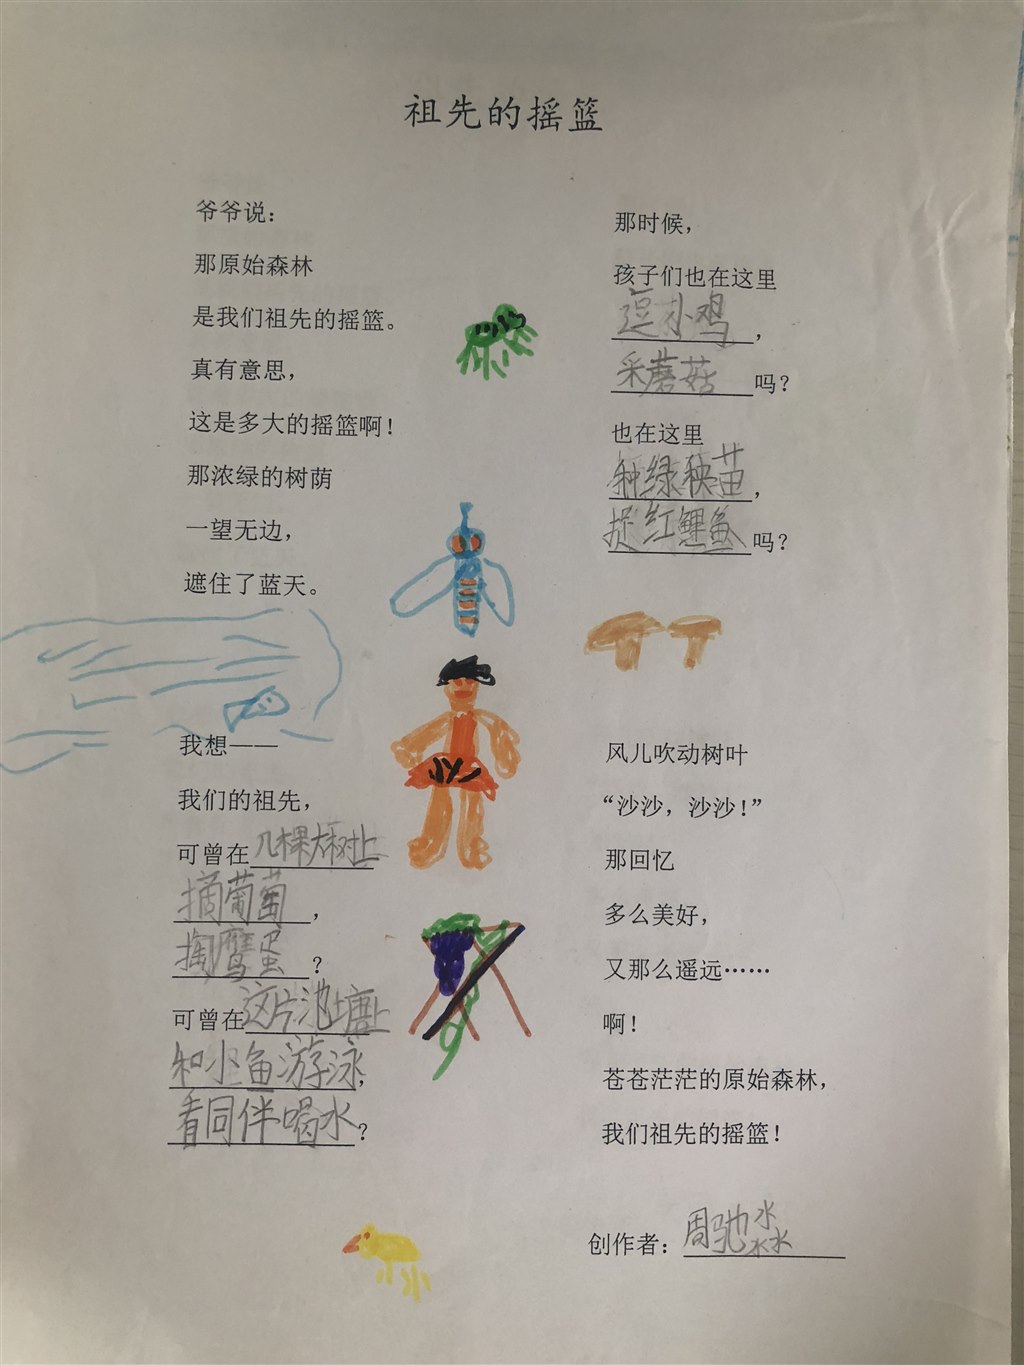 祖先的摇篮
爷爷说：
那原始森林
是我们祖先的摇篮。
真有意思，
这是多大的摇篮啊！
那浓绿的树荫
一望无边，
遮住了蓝天。
我想——
我们的祖先，
可曾在几棵大树上
摘葡萄，
掏鹰蛋？
可曾在这片池塘上
和小鱼游泳，
看同伴喝水？
那时候，
孩子们也在这里
逗小鸡，
采蘑菇吗？
也在这里
种绿秧苗，
捉红鲤鱼吗？
风儿吹动树叶
“沙沙，沙沙！”
那回忆
多么美好，
又那么遥远……
啊！
苍苍茫茫的原始森林，
我们祖先的摇篮！
创作者：周驰淼